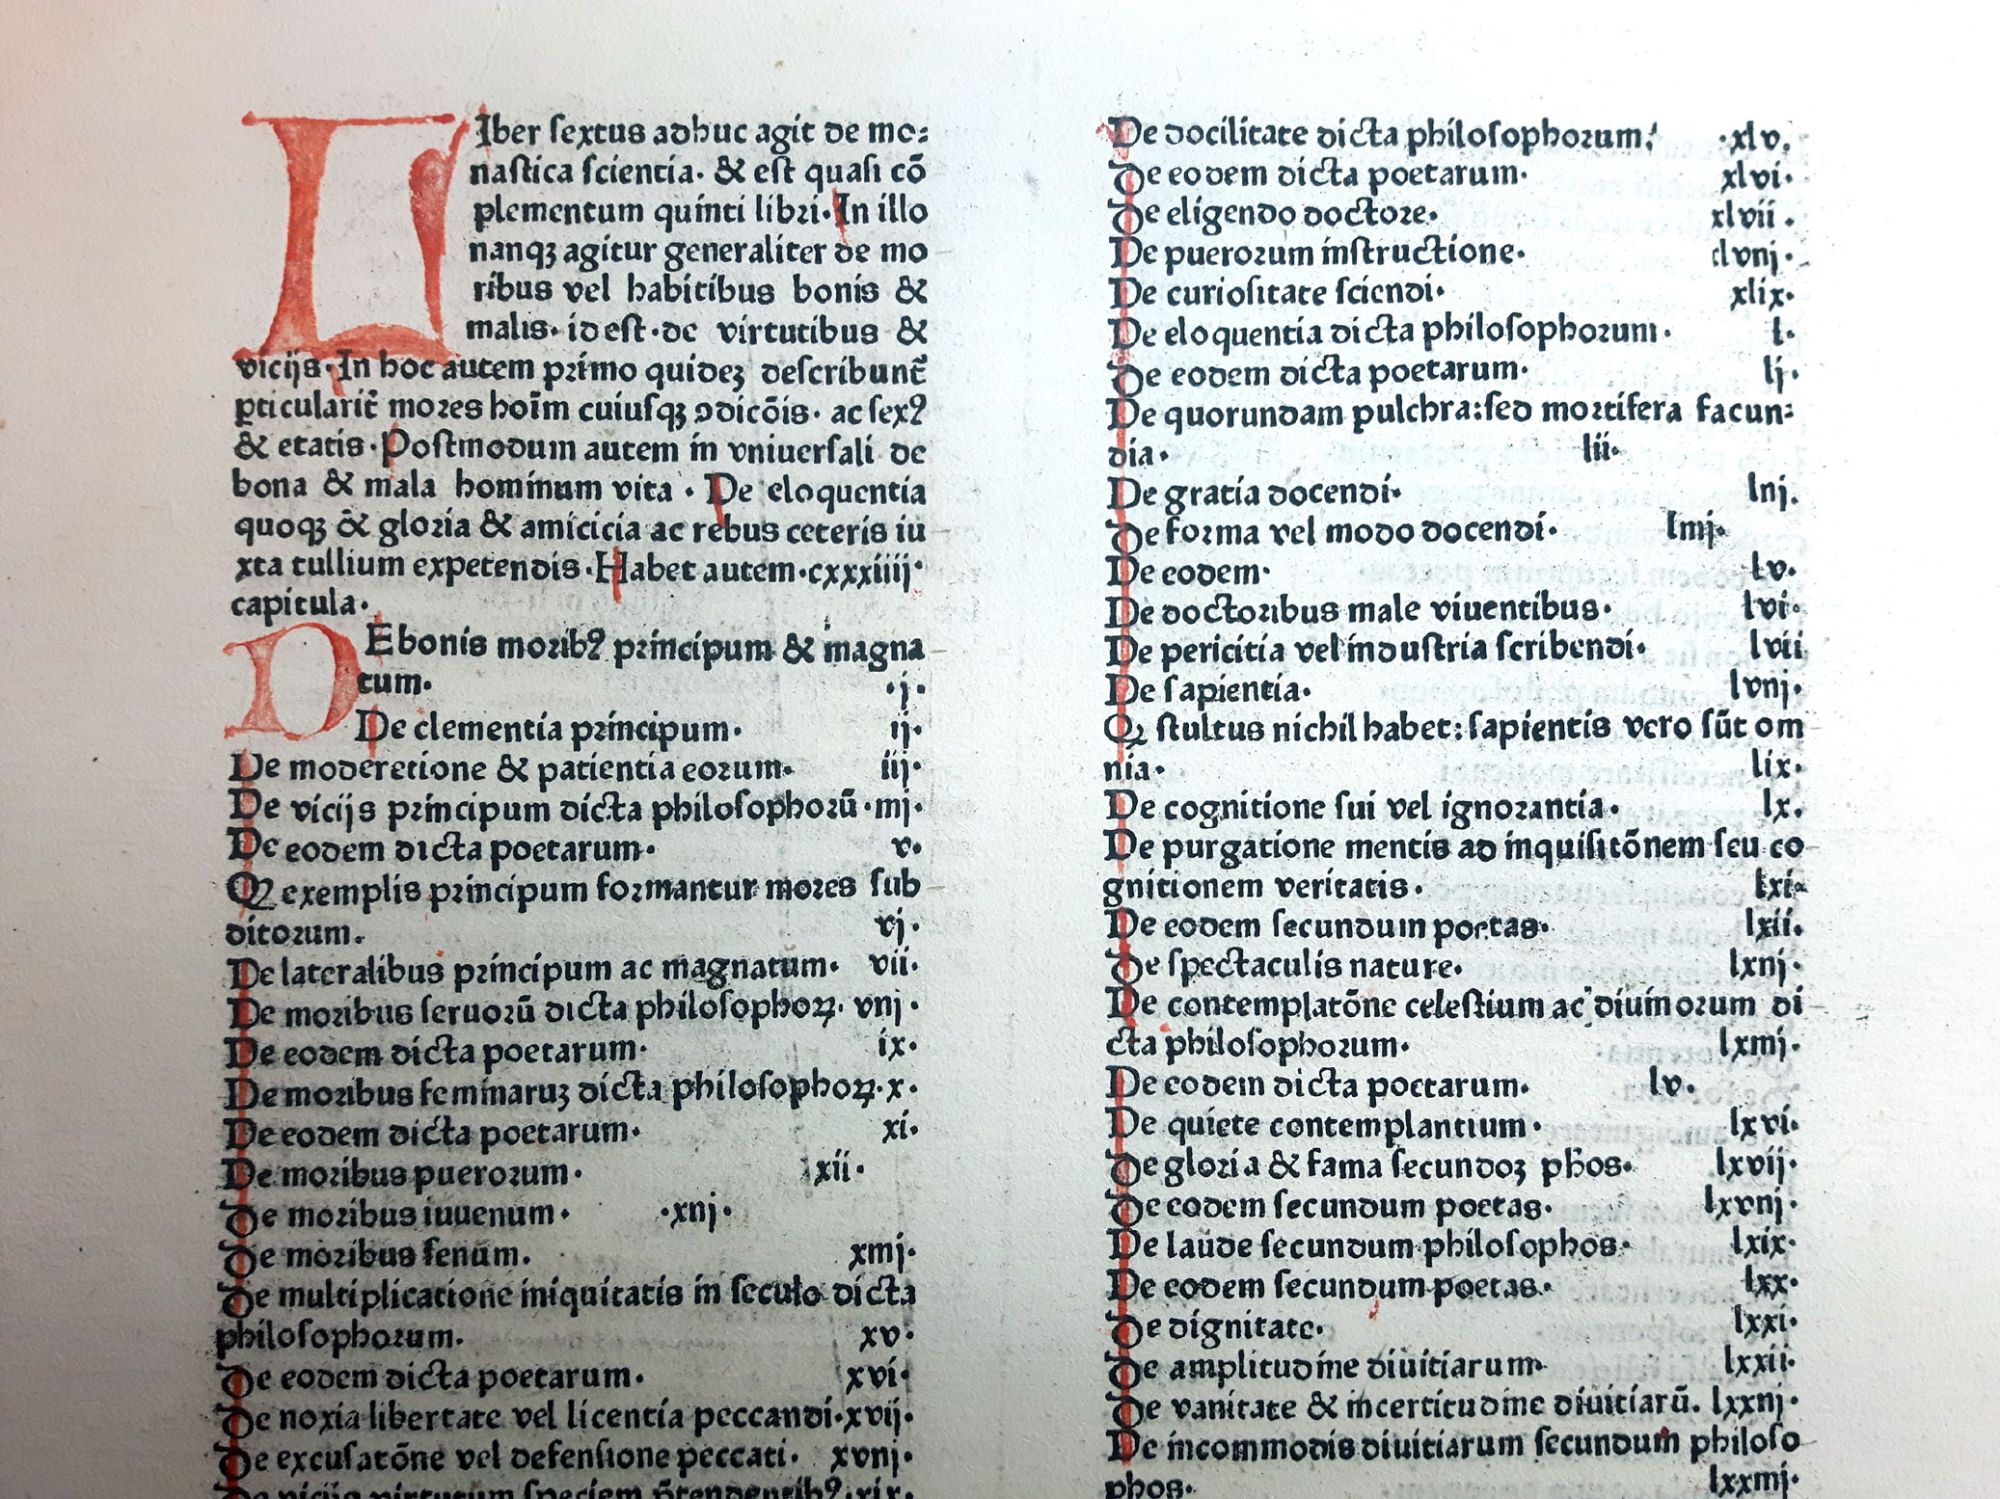 LIber sextus adhuc agit de mo:
nastica scientia. & est quasi cō
plementum quinti libri. In illo
nanqꝫ agitur generaliter de mo
ribus vel habitibus bonis &
malis. id est. de virtutibus &
vicijs. In hoc autem primo quideꝫ describunt̄
ꝑticularit̄ mores hoīm cuiusqꝫ ꝯdicōis. ac sexꝰ
& etatis. Postmodum autem in vniuersali de
bona & mala hominum vita. De eloquentia
quoqꝫ & gloria & amicicia ac rebus ceteris iu
xta tullium expetendis. Habet autem. cxxxiiij.
capitula.
DE bonis moribꝰ principum & magna
tum. .j.
De clementia principum. ij.
De moderetione & patientia eorum. iij.
De vicijs principum dicta philosophorū. iiij.
De eodem dicta poetarum. v.
Qꝫ exemplis principum formantur mores sub
ditorum. vj.
De lateralibus principum ac magnatum. vii.
De moribus seruorū dicta philosophoꝝ. viij.
De eodem dicta poetarum. ix.
De moribus feminaruꝫ dicta philosophoꝝ. x.
De eodem dicta poetarum. xi.
De moribus puerorum. xii.
De moribus iuuenum. .xiij.
De moribus senum. xiiij.
De multiplicatione iniquitatis in seculo dicta
philosophorum. xv.
De eodem dicta poetarum. xvi.
De noxia libertate vel licentia peccandi. xvij.
De excusatōne vel defensione peccati. xviij.
De vicijs virtutum speciem p̄tendentibꝰ. xix.
De docilitate dicta philosophorum. .xlv.
De eodem dicta poetarum. xlvi.
De eligendo doctore. xlvii.
De puerorum instructione. xlviij.
De curiositate sciendi. xlix.
De eloquentia dicta philosophorum. l.
De eodem dicta poetarum. lj.
De quorundam pulchra: sed mortifera facun:
dia. lii.
De gratia docendi. liij.
De forma vel modo docendi. liiij.
De eodem. lv.
De doctoribus male viuentibus. lvi.
De pericitia vel industria scribendi. lvii
De sapientia. lviij.
Qꝫ stultus nichil habet: sapientis vero sūt om
nia. lix.
De cognitione sui vel ignorantia. lx.
De purgatione mentis ad inquisitōnem seu co
gnitionem veritatis. lxi.
De eodem secundum poetas. lxii.
De spectaculis nature. lxiij.
De contemplatōne celestium ac diuinorum di
cta philosophorum. lxiiij.
De eodem dicta poetarum. lv.
De quiete contemplantium. lxvi.
De gloria & fama secundoꝫ phos. lxvij.
De eodem secundum poetas. lxviij.
De laude secundum philosophos. lxix.
De eodem secundum poetas. lxx.
De dignitate. lxxi.
De amplitudine diuitiarum. lxxii.
De vanitate & incertitudine diuitiarū. lxxiij.
De incommodis diuitiarum secundum philoso
phos. lxxiiij.